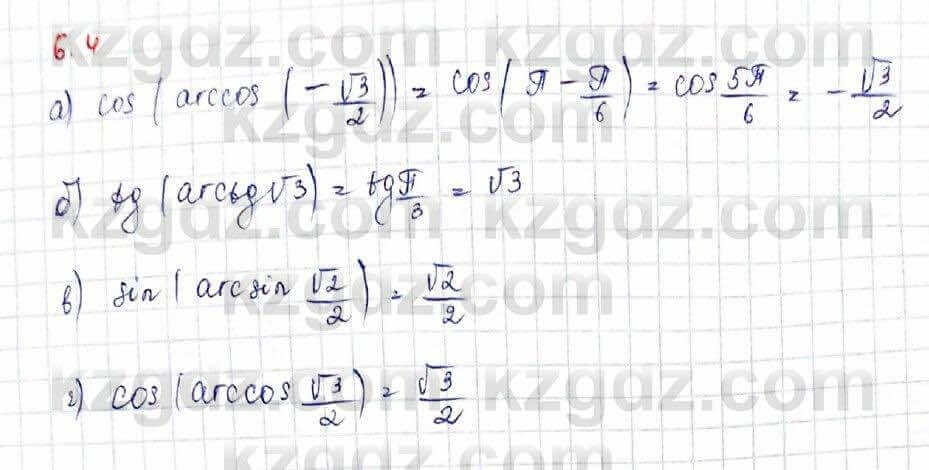 6.4
а) cos (arccos (-√3/2)) = cos (π - π/6) = cos 5π/6 = -√3/2
б) tg (arctg √3) = tg π/3 = √3
в) sin (arcsin √2/2) = √2/2
г) cos (arccos √3/2) = √3/2
kzgdz.com kzgdz.com
kzgdz.com kzgdz.com
kzgdz.com kzgdz.com
kzgdz.com kzgdz.com
kzgdz.com kzgdz.com